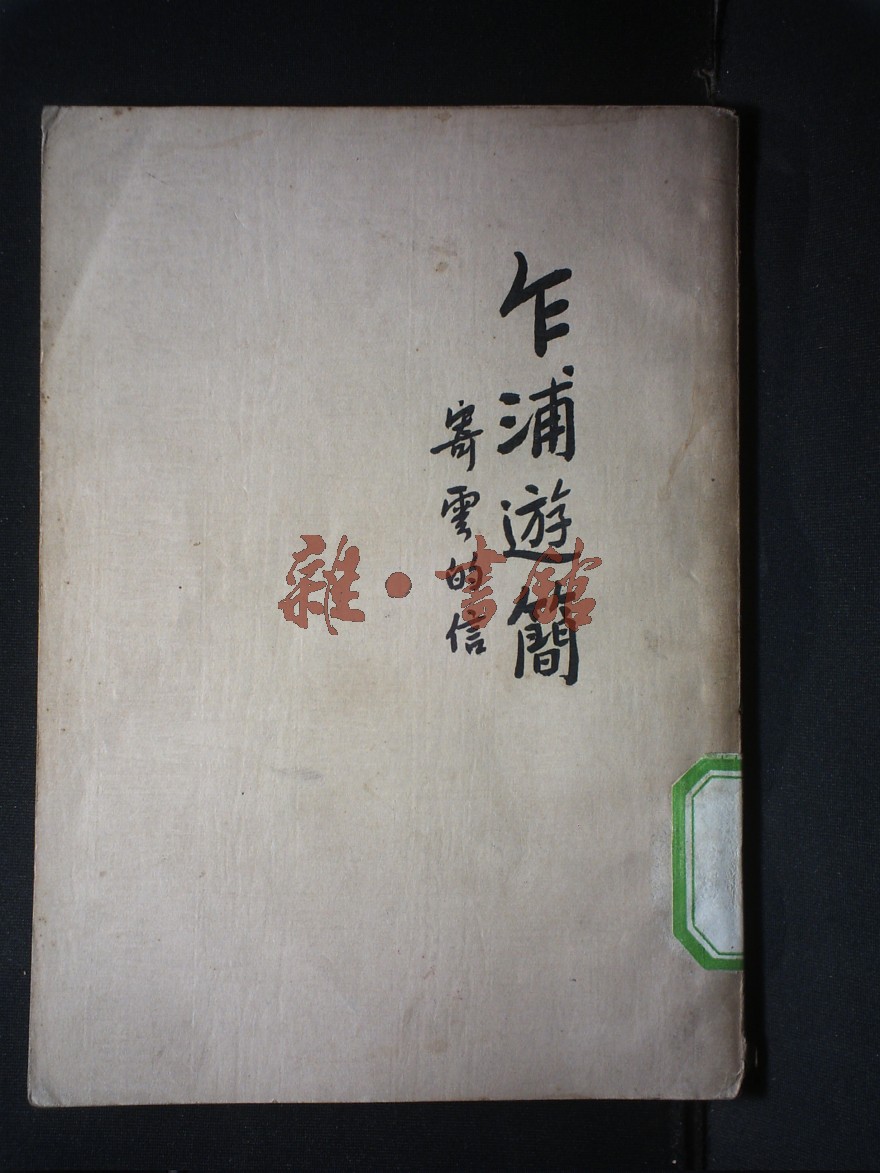 乍浦遊簡
寄雲的信
雜·書館